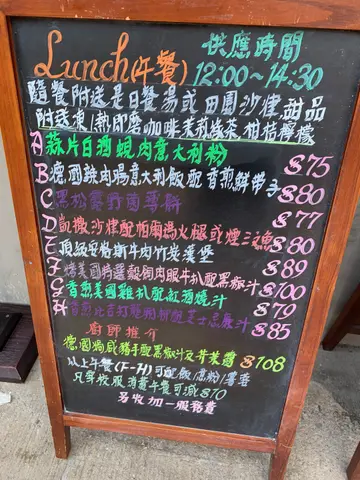 Lunch(午餐) 供應時間
12:00~14:30
隨餐附送是日餐湯或田園沙律,甜品
附送凍/熱即磨咖啡茉莉綠茶 柑桔檸檬
A 蒜片白酒蜆肉意大利粉 $75
B 德國辣肉腸意大利飯配香煎鮮帶子 $80
C 黑松露野菌 $77
D 凱撒沙律配帕爾馬火腿或煙三文魚 $80
E 頂級安格斯牛肉竹炭漢堡 $89
F 烤美國特選 肉眼牛扒配黑椒汁 $100
G 香煎美國雞扒配紅酒燒汁 $79
H 芝士忌廉汁 $85
廚師推介
德國焗咸豬手配黑椒汁及芥茉醬 $108
以上午餐(F-H)可配飯/意粉/薯
凡穿校服消費午餐可減$10
另收加一服務費